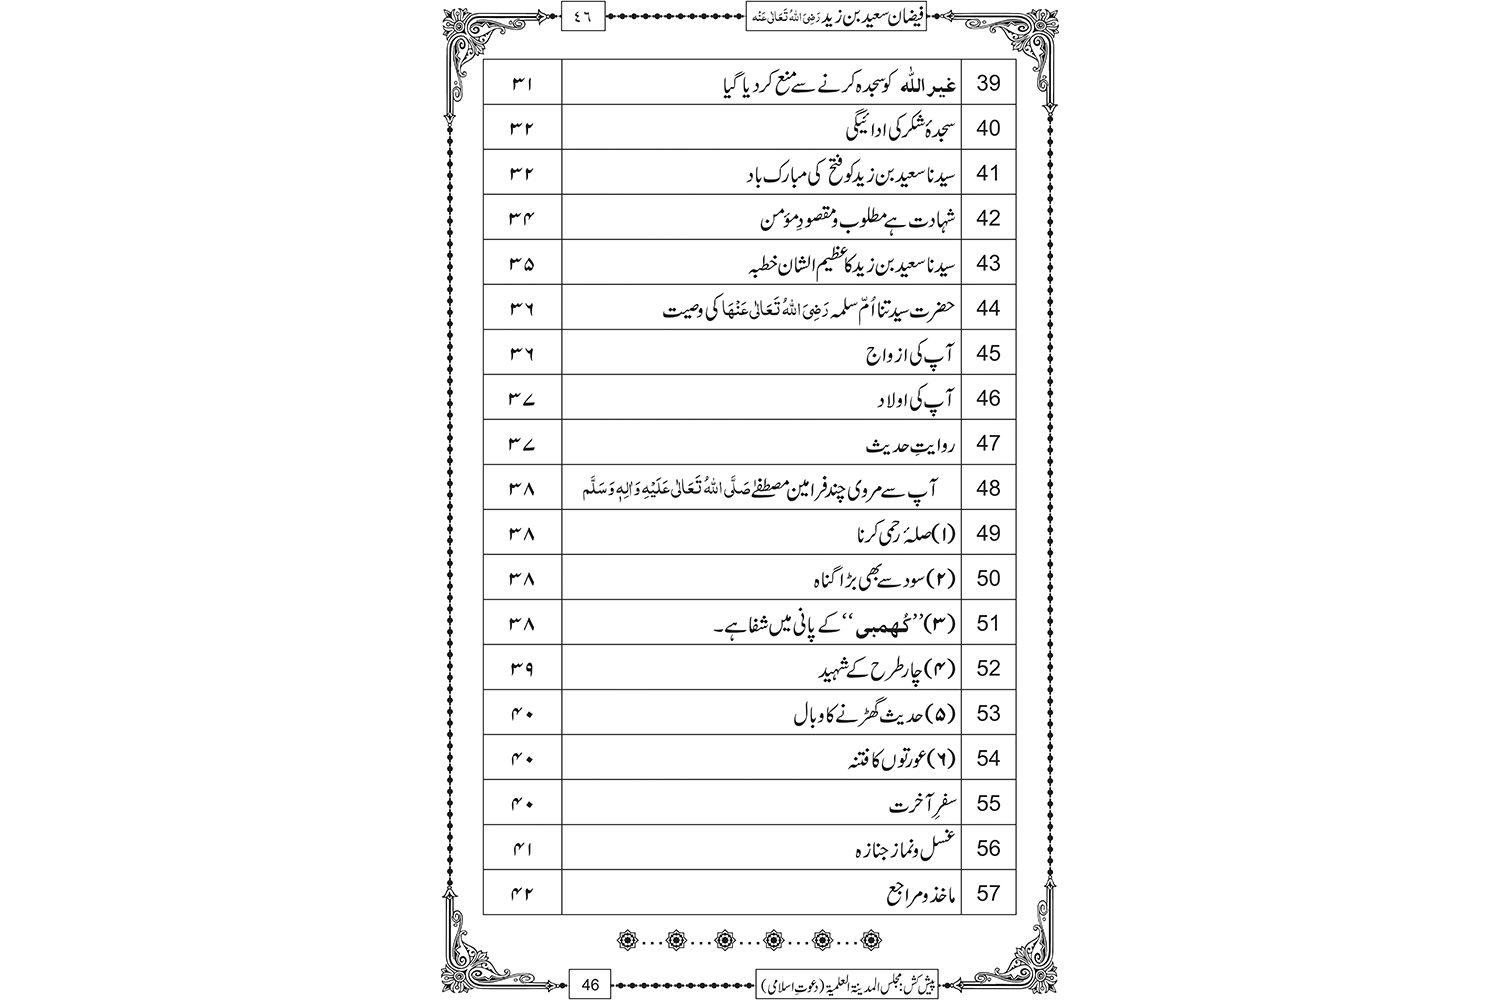 فیضان سعید بن زید رَضِیَ اللہُ تَعَالٰی عَنْہ ٤٦
39 غیر اللّٰہ کو سجدہ کرنے سے منع کر دیا گیا ۳۱
40 سجدۂ شکر کی ادائیگی ۳۲
41 سیدنا سعید بن زید کو فتح کی مبارک باد ۳۲
42 شہادت ہے مطلوب و مقصودِ مؤمن ۳۴
43 سیدنا سعید بن زید کا عظیم الشان خطبہ ۳۵
44 حضرت سیدتنا اُمّ سلمہ رَضِیَ اللہُ تَعَالٰی عَنْہَا کی وصیت ۳۶
45 آپ کی ازواج ۳۶
46 آپ کی اولاد ۳۷
47 روایتِ حدیث ۳۷
48 آپ سے مروی چند فرامین مصطفےٰ صَلَّی اللہُ تَعَالٰی عَلَیْہِ وَاٰلِہٖ وَسَلَّم ۳۸
49 (۱) صلۂ رحمی کرنا ۳۸
50 (۲) سود سے بھی بڑا گناہ ۳۸
51 (۳) ’’کُھمبی‘‘ کے پانی میں شفا ہے۔ ۳۸
52 (۴) چار طرح کے شہید ۳۹
53 (۵) حدیث گھڑنے کا وبال ۴۰
54 (۶) عورتوں کا فتنہ ۴۰
55 سفرِ آخرت ۴۰
56 غسل و نماز جنازہ ۴۱
57 ماخذ و مراجع ۴۲
پیش کش: مجلس المدینۃ العلمیۃ (دعوتِ اسلامی) 46